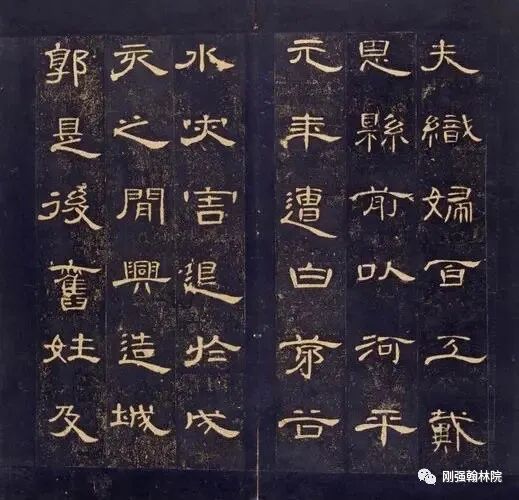 夫織婦百工戴
恩縣前以河平
元年遭白茅谷
水灾害退於戌
亥之間興造城
郭是後舊姓及
刚强翰林院